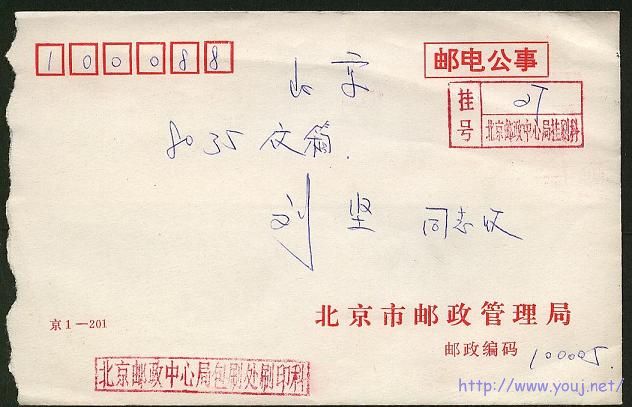 100088
邮电公事
北京
挂号
北京邮政中心局挂刷科
8035 文箱
刘坚 同志收
北京市邮政管理局
京1—201
邮政编码 100005
北京邮政中心局包刷处刷印科
http://www.youj.net/